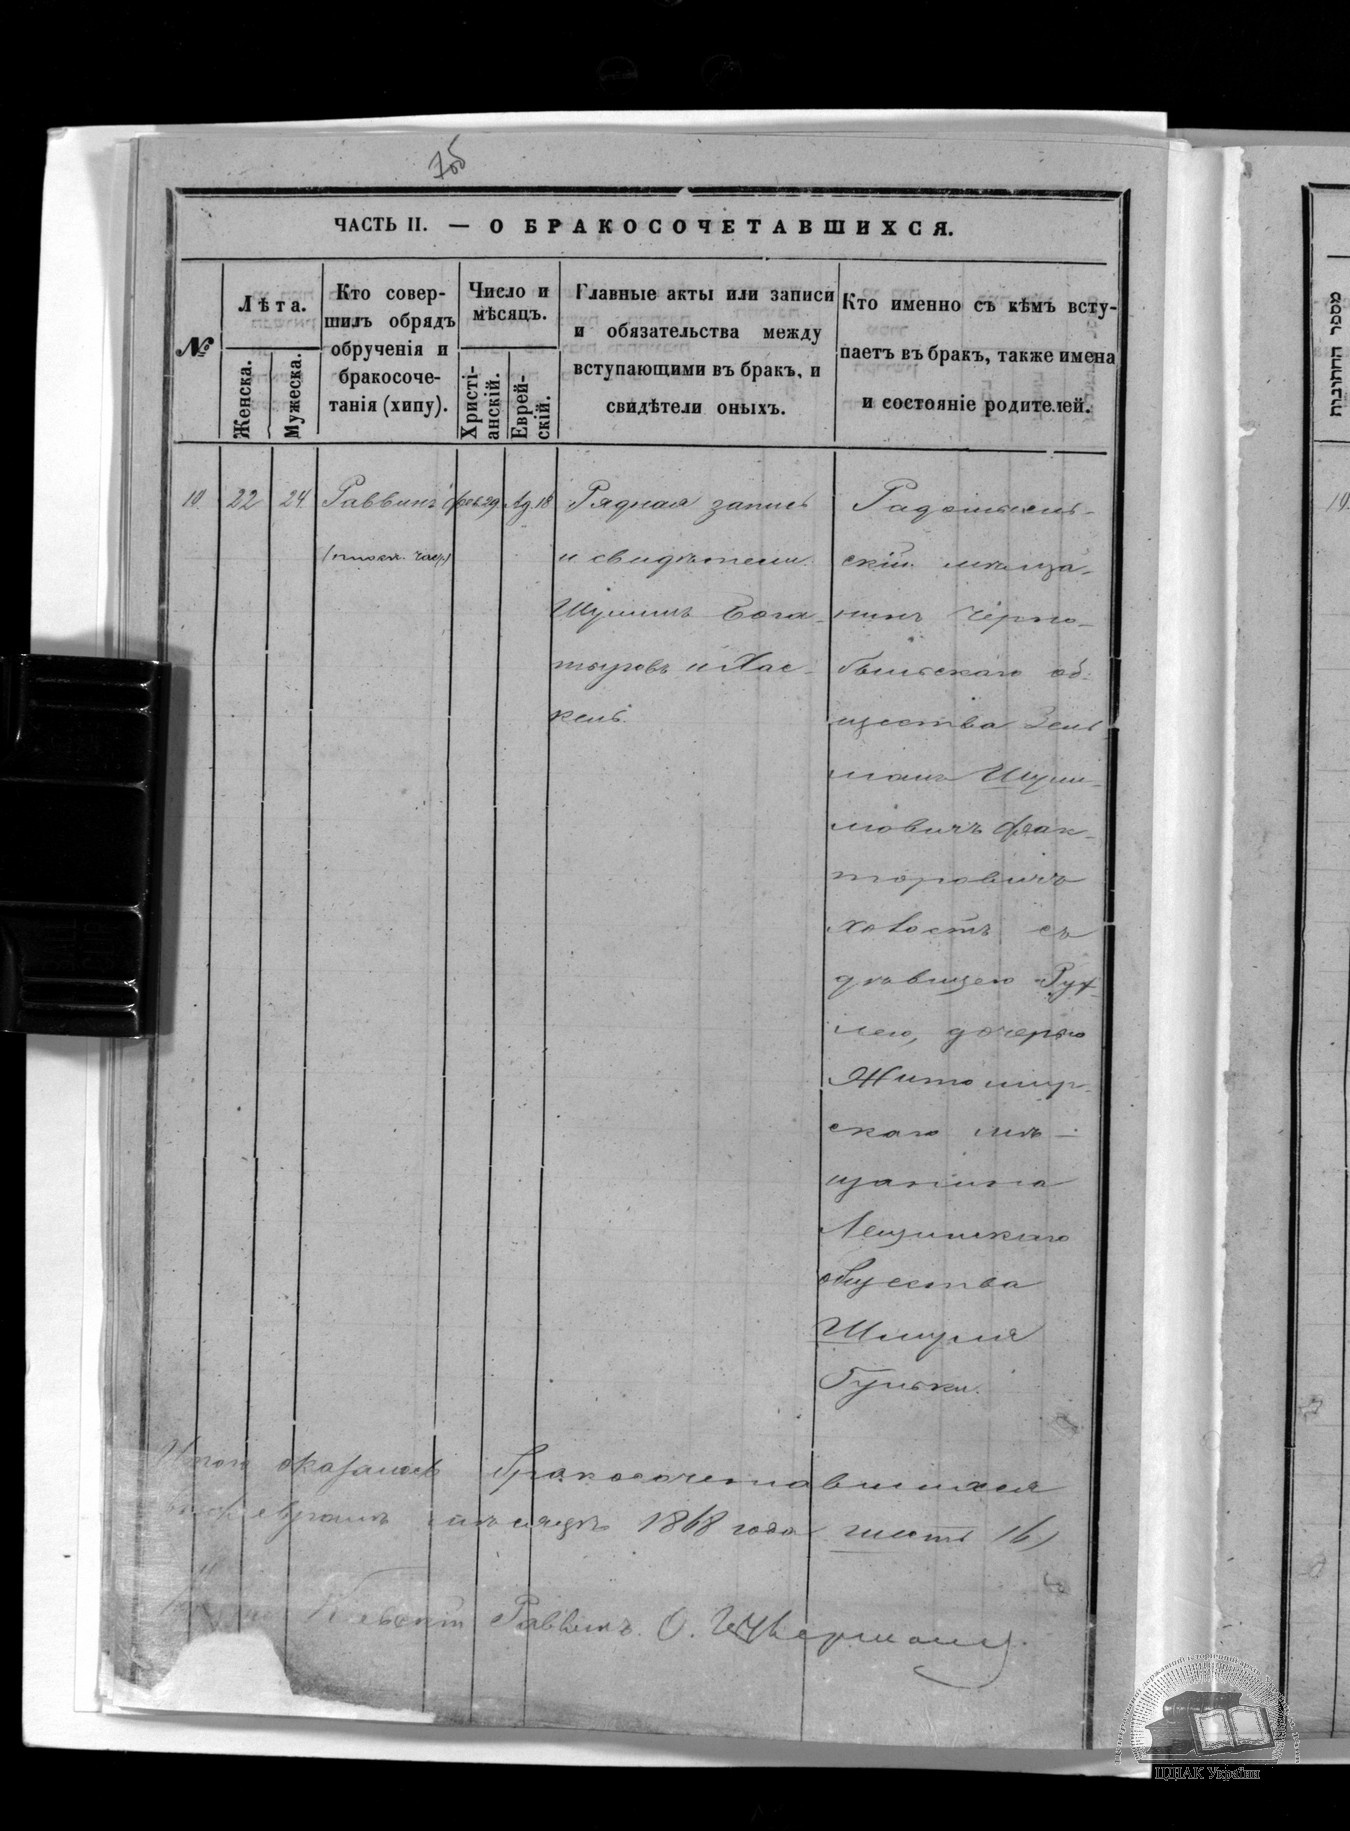 ЧАСТЬ II. — О БРАКОСОЧЕТАВШИХСЯ.
№
Лѣта.
Женска.
Мужеска.
Кто совер-
шилъ обрядъ
обрученія и
бракосоче-
танія (хипу).
Число и
мѣсяцъ.
Христі-
анскій.
Еврей-
скій.
Главные акты или записи
и обязательства между
вступающими въ бракъ, и
свидѣтели оныхъ.
Кто именно съ кѣмъ всту-
паетъ въ бракъ, также имена
и состояніе родителей.
10. 22 24 Раввинъ фев 29 Ад. 18
Рядная запись
и свидѣтели
Шулимъ Бога-
тыровъ и Хас-
кель.
Радомысль-
скій мѣща-
нинъ Черно-
быльскаго об-
щества Зель
манъ Шули-
мовичъ Фак-
торовичъ
Ховостъ съ
дѣвицею Рух-
лею, дочерью
Житомир-
скаго мѣ-
щанина
Лещинскаго
общества
Шмуля
Гульки.
Итого оказалось бракосочетавшихся
въ февралѣ мѣсяцѣ 1868 года шесть (6)
Кіевскій Раввинъ. О. Цукерманъ
מספר החתונות
ЦДІАК України